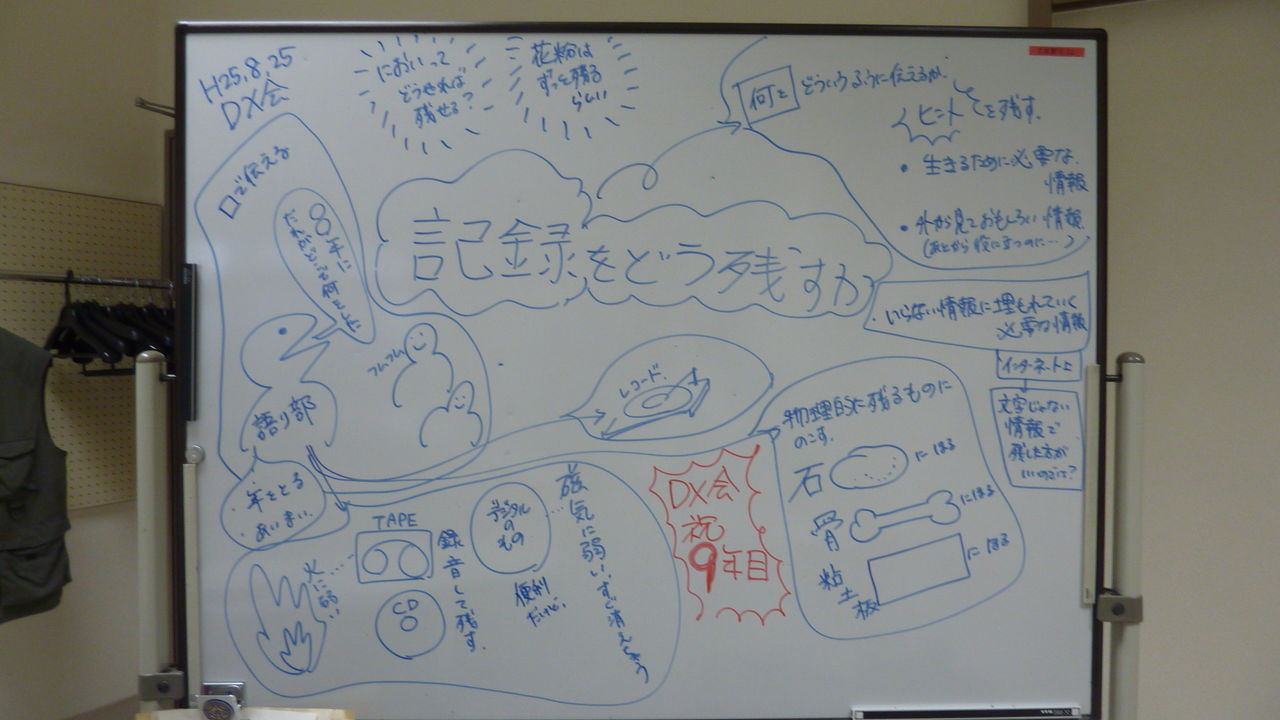 H25.8.25
DX会
においって
どうすれば
残せる?
花粉は
ずっと残る
らしい
何を どういうふうに伝えるか.
ヒントを残す.
・生きるために必要な
情報
・外から見ておもしろい情報.
(あとから役に立つのに…)
記録をどう残すか
・いらない情報に埋もれていく
必要な情報
インターネット上
文字じゃない
情報で
残した方が
いいのでは?
口で伝える
〇〇年に
フムフム
語り部
・年をとる
・あいまい.
レコード.
物理的に残るものに
のこす.
石 にほる
骨 にほる
粘土板 にほる
DX会
祝
9年目
TAPE
CD
録音して残す.
火に弱い.
デジタル
のもの
便利
だけど.
磁気に弱い.すぐ消えちゃう